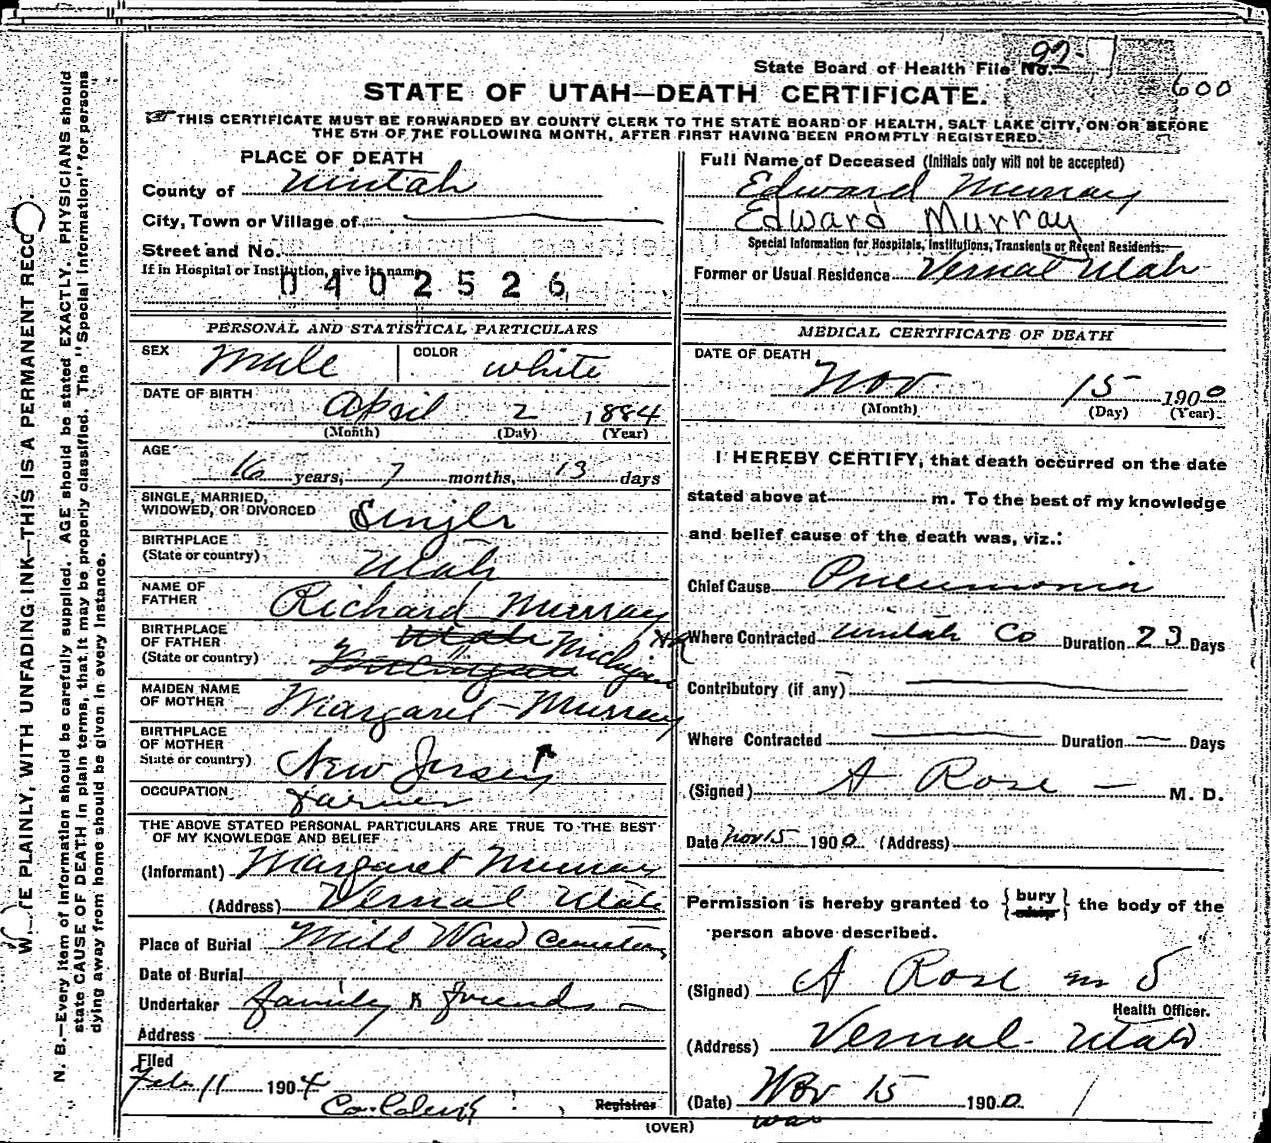 State Board of Health File No. 92
600
STATE OF UTAH—DEATH CERTIFICATE.
THIS CERTIFICATE MUST BE FORWARDED BY COUNTY CLERK TO THE STATE BOARD OF HEALTH, SALT LAKE CITY, ON OR BEFORE
THE 5TH OF THE FOLLOWING MONTH, AFTER FIRST HAVING BEEN PROMPTLY REGISTERED.
PLACE OF DEATH
County of Uintah
City, Town or Village of
Street and No.
If in Hospital or Institution, give its name
0402526
PERSONAL AND STATISTICAL PARTICULARS
SEX Male COLOR white
DATE OF BIRTH April 2 1884
(Month) (Day) (Year)
AGE 16 years, 7 months, 13 days
SINGLE, MARRIED,
WIDOWED, OR DIVORCED Single
BIRTHPLACE
(State or country) Utah
NAME OF
FATHER Richard Murray
BIRTHPLACE
OF FATHER Utah Michigan
(State or country)
MAIDEN NAME
OF MOTHER Margaret Murray
BIRTHPLACE
OF MOTHER
State or country) New Jersey
OCCUPATION Farmer
THE ABOVE STATED PERSONAL PARTICULARS ARE TRUE TO THE BEST
OF MY KNOWLEDGE AND BELIEF
(Informant) Margaret Murray
(Address) Vernal Utah
Place of Burial Mill Ward Cemetery
Date of Burial
Undertaker family & friends
Address
Filed
Feb 11 1904
Co. Clerk Registrar
(OVER)
Full Name of Deceased (Initials only will not be accepted)
Edward Murray
Edward Murray
Special Information for Hospitals, Institutions, Transients or Recent Residents.
Former or Usual Residence Vernal Utah
MEDICAL CERTIFICATE OF DEATH
DATE OF DEATH
Nov 15 1900
(Month) (Day) (Year)
I HEREBY CERTIFY, that death occurred on the date
stated above at m. To the best of my knowledge
and belief cause of the death was, viz.:
Chief Cause Pneumonia
Where Contracted Uintah Co Duration 23 Days
Contributory (if any)
Where Contracted Duration Days
(Signed) A Rose M. D.
Date Nov 15 1900 (Address)
Permission is hereby granted to {bury
ship} the body of the
person above described.
(Signed) A Rose
Health Officer.
(Address) Vernal Utah
(Date) Nov 15 1900
W. TE PLAINLY, WITH UNFADING INK—THIS IS A PERMANENT RECO
N. B.—Every item of information should be carefully supplied. AGE should be stated EXACTLY. PHYSICIANS should
state CAUSE OF DEATH in plain terms, that it may be properly classified. The "Special Information" for persons
dying away from home should be given in every instance.